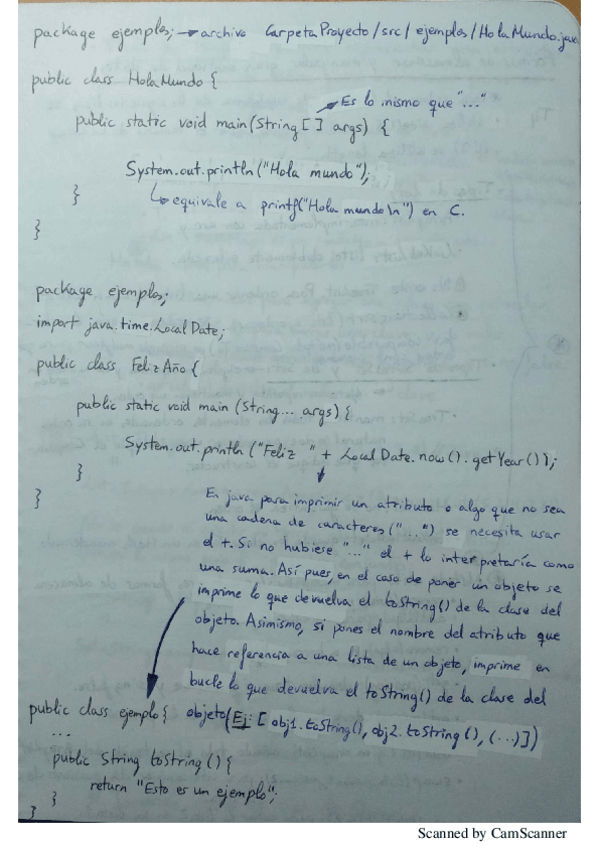 package ejemplos; → archivo CarpetaProyecto/src/ejemplos/HolaMundo.java
public class HolaMundo {
Es lo mismo que "..."
public static void main(String[] args) {
System.out.println("Hola mundo");
}
↳ equivale a printf("Hola mundo\n") en C.
}
package ejemplos;
import java.time.LocalDate;
public class FelizAño {
public static void main (String... args) {
System.out.println ("Feliz " + LocalDate.now().getYear());
}
}
En java para imprimir un atributo o algo que no sea
una cadena de caracteres ("...") se necesita usar
el +. Si no hubiese "..." el + lo interpretaría como
una suma. Así pues, en el caso de poner un objeto se
imprime lo que devuelva el toString() de la clase del
objeto. Asimismo, si pones el nombre del atributo que
hace referencia a una lista de un objeto, imprime en
bucle lo que devuelva el toString() de la clase del
objeto (Ej: [obj1.toString(), obj2.toString(), (...)])
public class ejemplo {
...
public String toString() {
return "Esto es un ejemplo";
}
}
Scanned by CamScanner